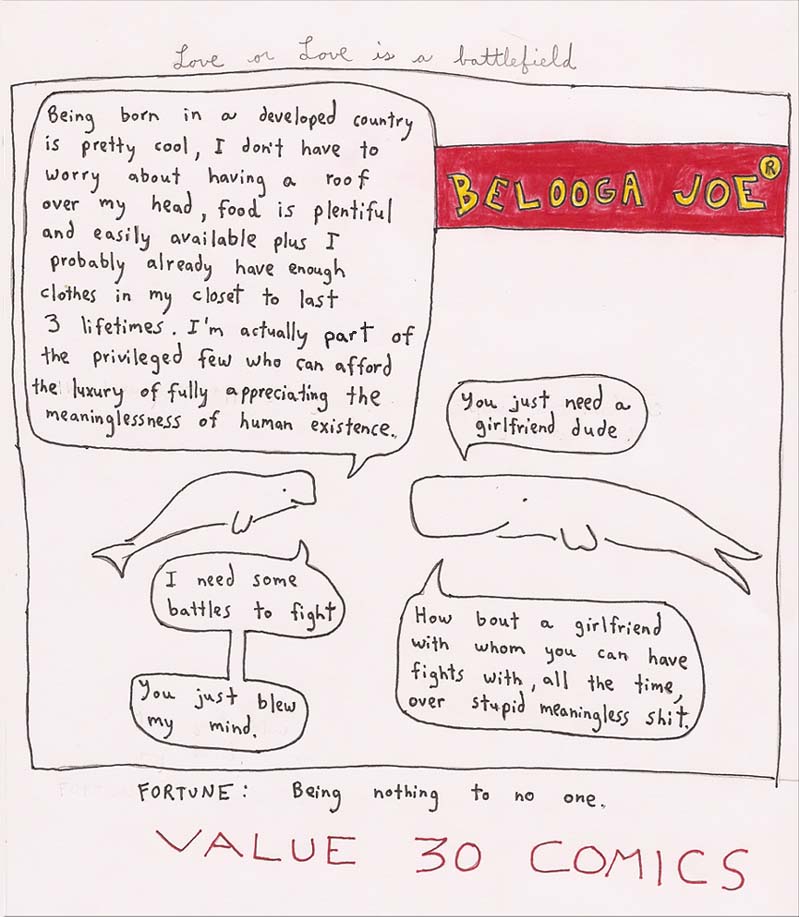 Love or Love is a battlefield
Being born in a developed country
is pretty cool, I don't have to
worry about having a roof
over my head, food is plentiful
and easily available plus I
probably already have enough
clothes in my closet to last
3 lifetimes. I'm actually part of
the privileged few who can afford
the luxury of fully appreciating the
meaninglessness of human existence.
BELOOGA JOE®
You just need a
girlfriend dude
I need some
battles to fight
How bout a girlfriend
with whom you can have
fights with, all the time,
over stupid meaningless shit.
You just blew
my mind.
FORTUNE: Being nothing to no one.
VALUE 30 COMICS